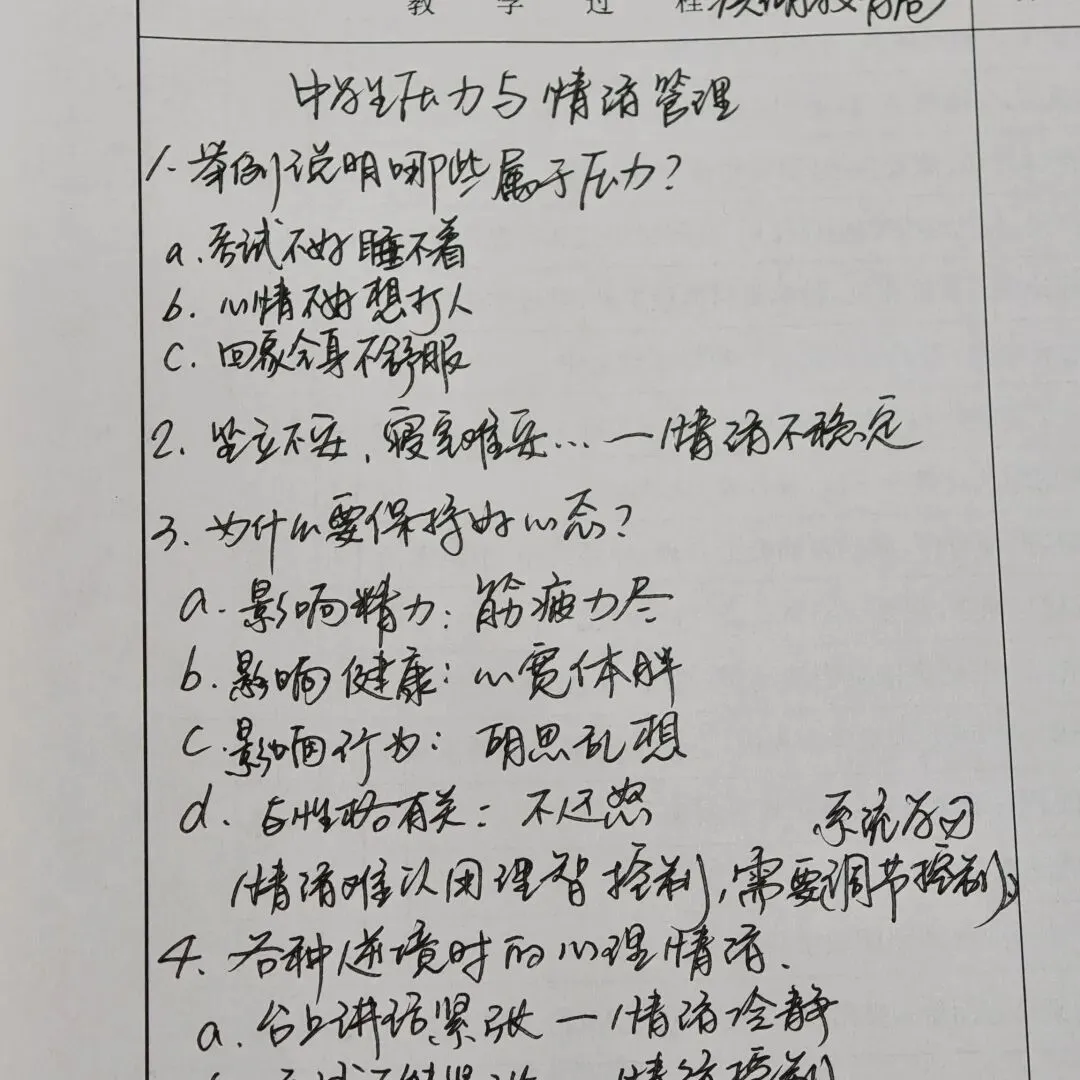 教学过程
中学生压力与情绪管理
1. 举例说明哪些属于压力?
a. 考试不好睡不着
b. 心情不好想打人
c. 回家全身不舒服
2. 坐立不安, 寝室难安… 一情绪不稳定
3. 为什么要保持好心态?
a. 影响精力: 筋疲力尽
b. 影响健康: 心宽体胖
c. 影响行为: 胡思乱想
d. 与性格有关: 不迁怒
系统学习
情绪难以用理智控制, 需要调节控制。
4. 各种逆境时的心理情绪.
a. 台上讲话紧张 一 情绪冷静